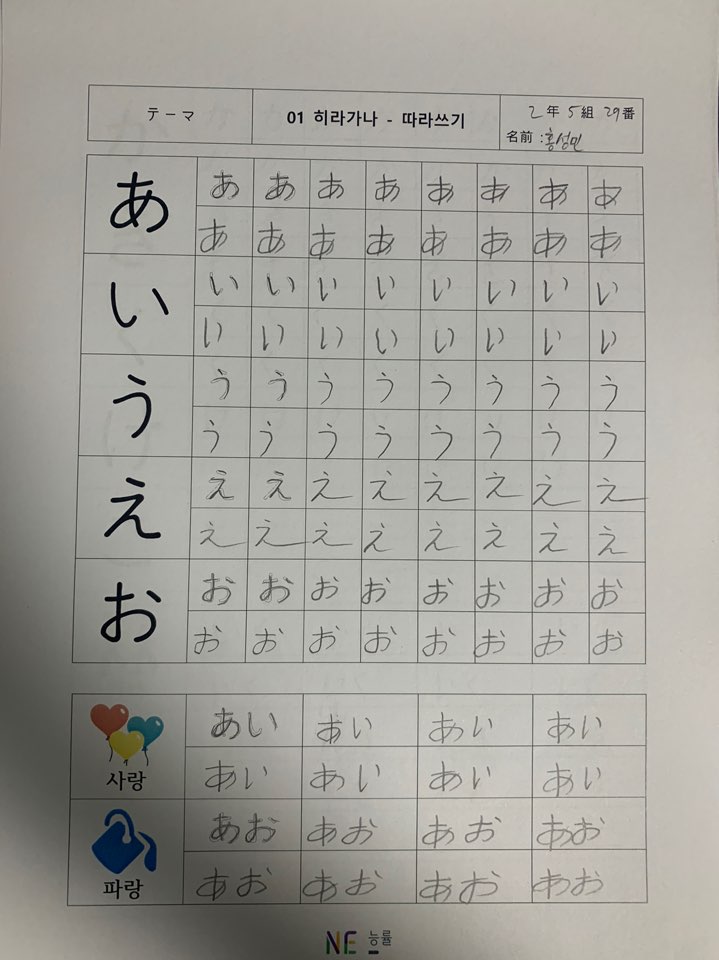 テーマ
01 히라가나 - 따라쓰기
2年 5組 29番
名前 : 홍성민
あ あ あ あ あ あ あ あ あ
あ あ あ あ あ あ あ あ
い い い い い い い い い
い い い い い い い い
う う う う う う う う う
う う う う う う う う
え え え え え え え え え
え え え え え え え え
お お お お お お お お お
お お お お お お お お
あい あい あい あい
사랑 あい あい あい あい
あお あお あお あお
파랑 あお あお あお あお
NE 능률